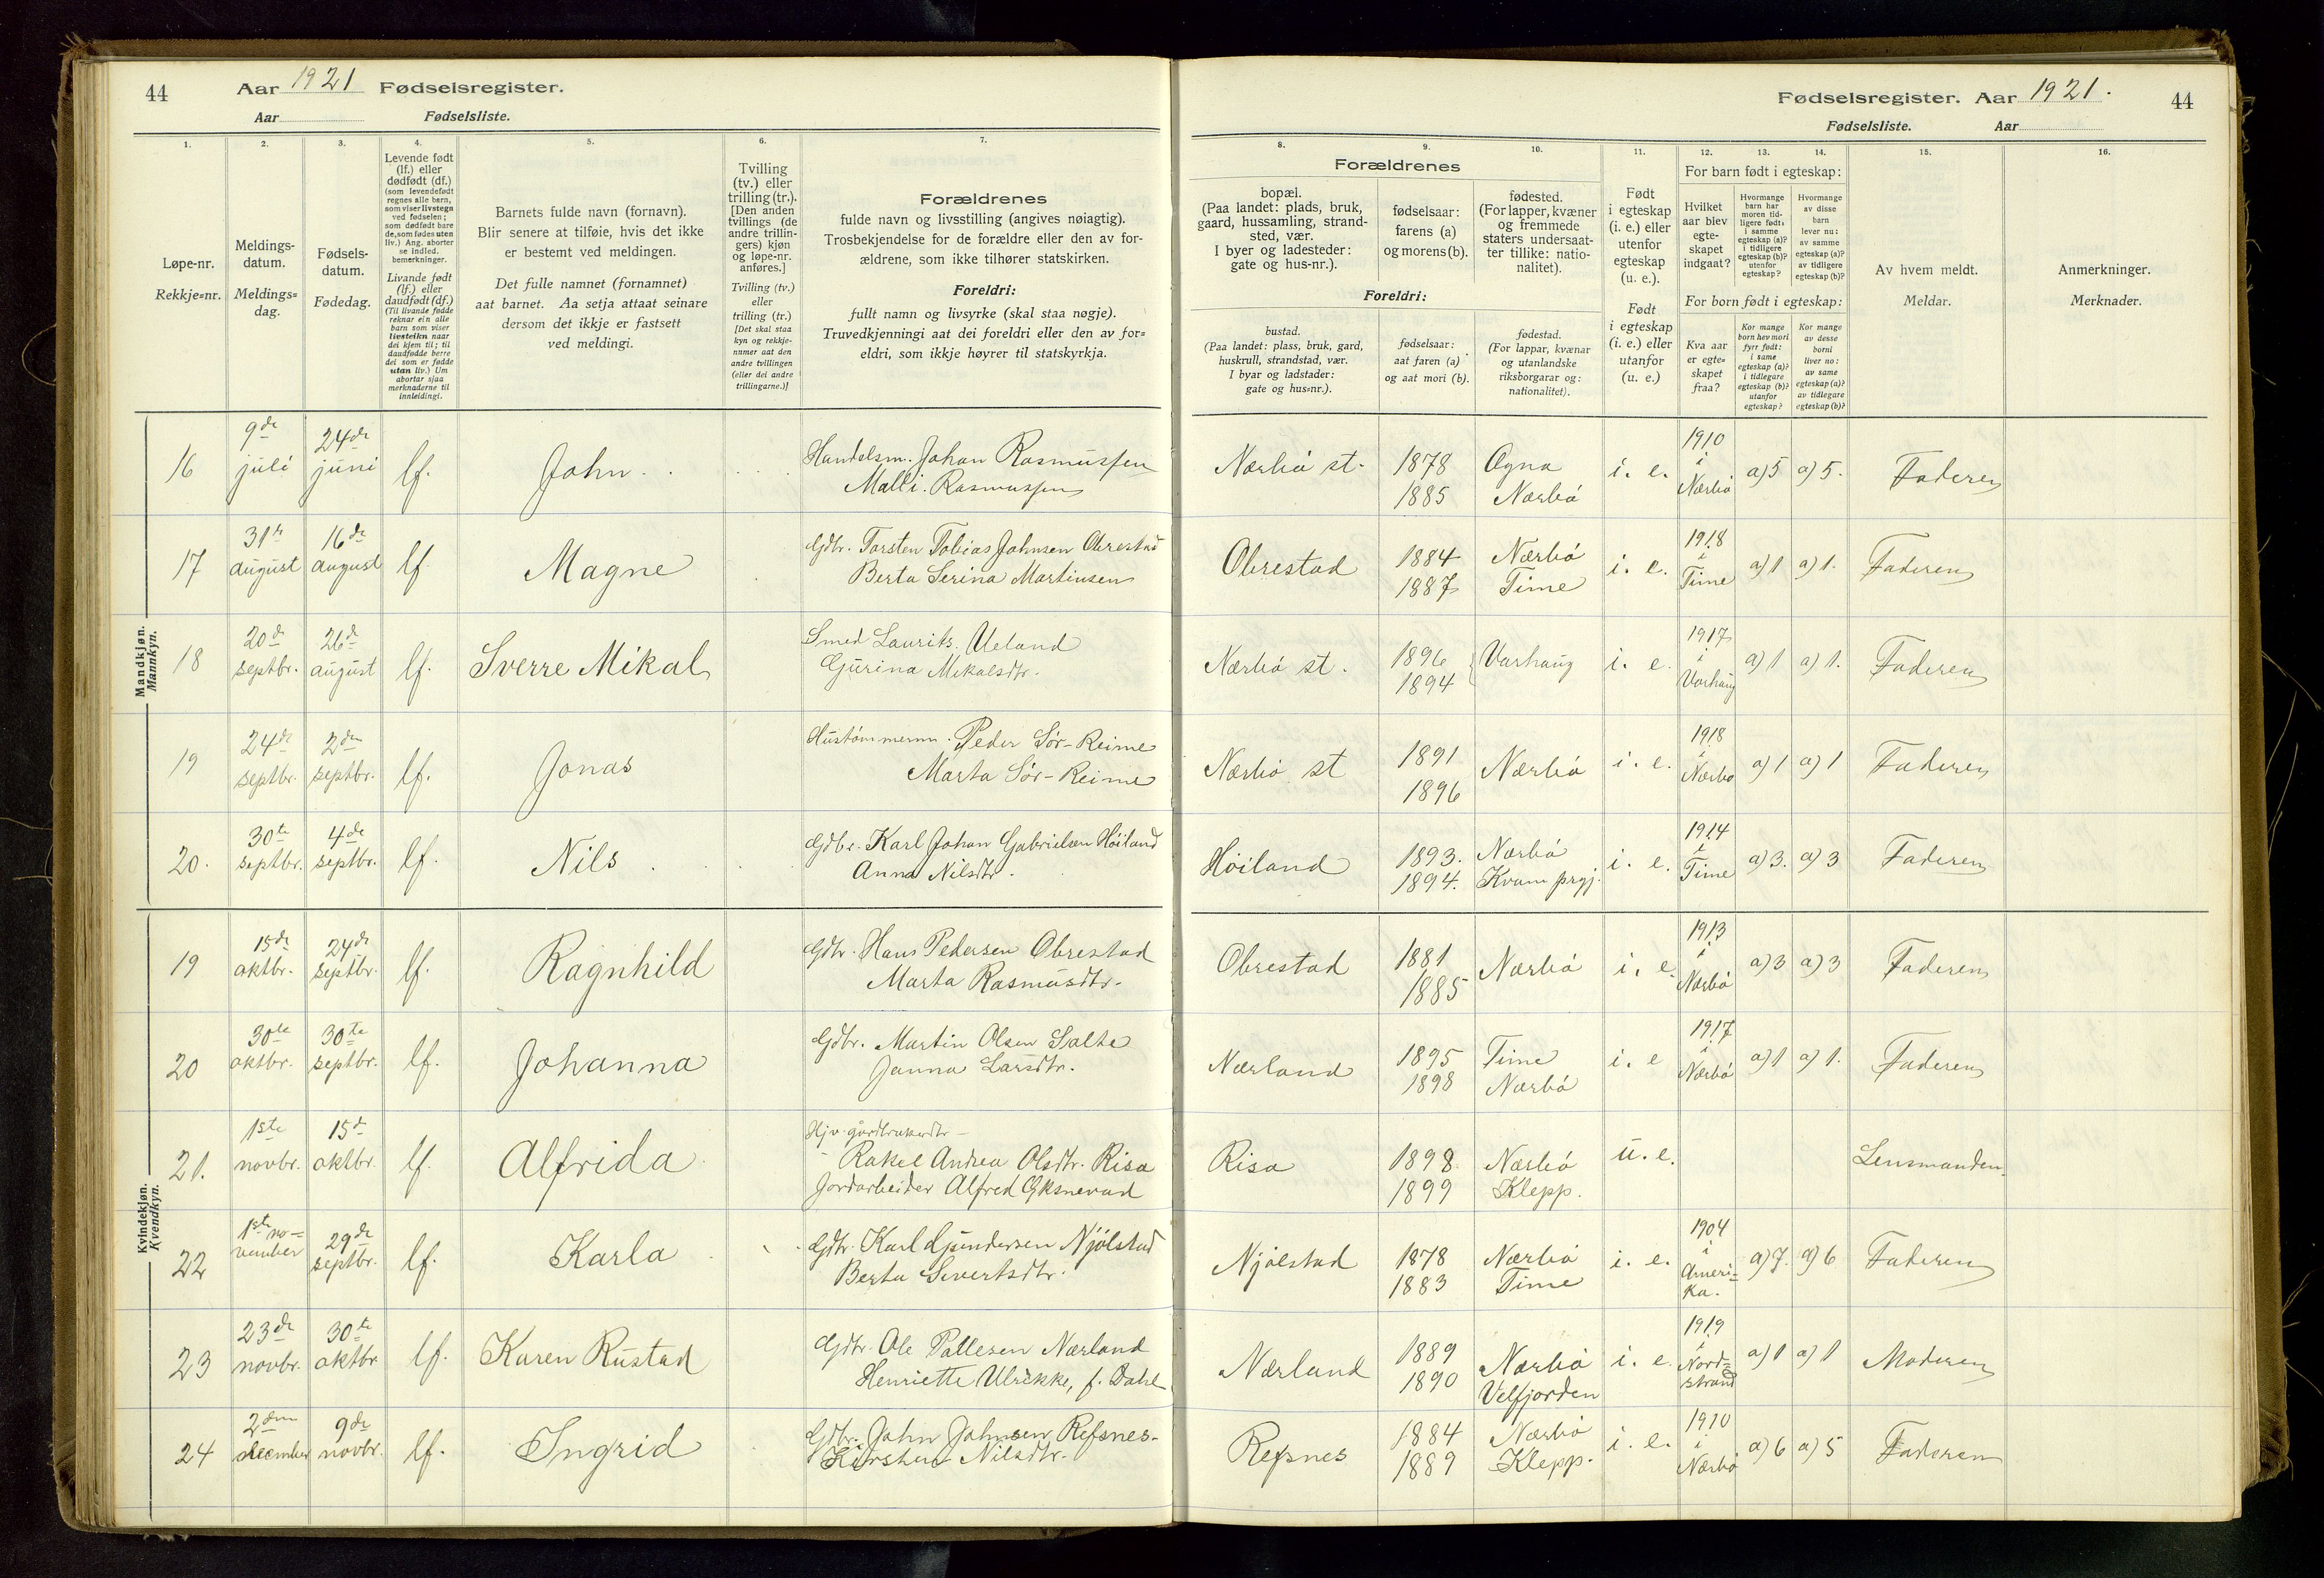 44 Aar 1921 Fødselsregister.
Aar Fødselsliste.
1. 2. 3. 4. 5. 6. 7.
Løpe-nr.
Rekkje=nr.
Meldings-
datum.
Meldings=
dag.
Fødsels-
datum.
Fødedag.
Levende født
(lf.) eller
dødfødt (df.)
(som levendefødt
regnes alle barn,
som viser livstegn
ved fødselen;
som dødfødt bare
de, som fødes uten
liv.) Ang. aborter
se indled.
bemerkninger.
Livande født
(lf.) eller
daudfødt (df.)
(Til livande fødde
reknar ein alle
barn som viser
livsteikn naar
dei kjem til; til
daudfødde berre
dei som er fødde
utan liv.) Um
abortar sjaa
merknaderne til
innleidingi.
Barnets fulde navn (fornavn).
Blir senere at tilføie, hvis det ikke
er bestemt ved meldingen.
Det fulle namnet (fornamnet)
aat barnet. Aa setja attaat seinare
dersom det ikkje er fastsett
ved meldingi.
Tvilling
(tv.) eller
trilling (tr.).
[Den anden
tvillings (de
andre trillin-
gers) kjøn
og løpe-nr.
anføres.]
Tvilling (tv.)
eller
trilling (tr.)
[Det skal staa
kyn og rekkje-
numer aat den
andre tvillingen
(eller dei andre
trillingarne.)]
Forældrenes
fulde navn og livsstilling (angives nøiagtig).
Trosbekjendelse for de forældre eller den av for-
ældrene, som ikke tilhører statskirken.
Foreldri:
fullt namn og livsyrke (skal staa nøgje).
Truvedkjenningi aat dei foreldri eller den av for=
eldri, som ikkje høyrer til statskyrkja.
Mandkjøn.
Mannkyn.
16 9de juli 24de juni lf. John. Handelsm. Johan Rasmussen
Malli Rasmussen
17 31te august 16de august lf. Magne Gdbr. Torsten Tobias Johnsen Obrestad
Berta Serina Martinsen
18 20de septbr. 26de august lf. Sverre Mikal Smed Laurits Ueland
Gurina Mikalsdtr.
19 24de septbr. 2den septbr. lf. Jonas Hustömmerm. Peder Sör-Reime
Marta Sör-Reime
20. 30te septbr. 4de septbr. lf. Nils Gdbr. Karl Johan Gabrielsen Höiland
Anna Nilsdtr.
Kvindekjøn.
Kvendkyn.
19 15de oktbr. 24de septbr. lf. Ragnhild Gdbr. Hans Pedersen Obrestad
Marta Rasmusdtr.
20 30te oktbr. 30te septbr. lf. Johanna Gdbr. Martin Olsen Salte
Janna Larsdtr.
21. 1ste novbr. 15de oktbr. lf. Alfrida Hjv. gardbrukerdtr
Rakel Andrea Olsdtr. Risa
Jordarbeider Alfred Öksnevad
22 1ste no=
vember 29de septbr. lf. Karla Gdbr. Karl Gundersen Njölstad
Berta Sivertsdtr.
23 23de novbr. 30te oktbr lf. Karen Rustad Gdbr. Ole Pallesen Nærland
Henriette Ulrikke, f. Dahl
24 2den december 9de novbr. lf. Ingrid Gdbr. John Johnsen Refsnes.
Kirsten Nilsdtr.
Fødselsregister. Aar 1921. 44
Fødselsliste. Aar
8. 9. 10. 11. 12. 13. 14. 15. 16.
Forældrenes
bopæl.
(Paa landet: plads, bruk,
gaard, hussamling, strand-
sted, vær.
I byer og ladesteder:
gate og hus-nr.).
fødselsaar:
farens (a)
og morens (b).
fødested.
(For lapper, kvæner
og fremmede
staters undersaat-
ter tillike: natio-
nalitet).
Foreldri:
bustad.
(Paa landet: plass, bruk, gard,
huskrull, strandstad, vær.
I byar og ladstader:
gate og hus=nr.).
fødselsaar:
aat faren (a)
og aat mori (b).
fødestad.
(For lappar, kvænar
og utanlandske
riksborgarar og:
nationalitet).
Født
i egteskap
(i. e.) eller
utenfor
egteskap
(u. e.).
Født
i egteskap
(i. e.) eller
utanfor
(u. e.)
For barn født i egteskap:
Hvilket
aar blev
egte-
skapet
indgaat?
Hvormange
barn har
moren tid-
ligere født,
i samme
egteskap (a)?
i tidligere
egteskap (b)?
utenfor
egteskap?
Hvormange
av disse
barn
lever nu:
av samme
egteskap (a)?
av tidligere
egteskap (b)?
For born født i egteskap:
Kva aar
er egte=
skapet
fraa?
Kor mange
born hev mori
fyrr født:
i same
egteskap (a)?
i tidlegare
egteskap (b)?
utanfor
egteskap?
Kor mange
av desse
borni
liver no:
av same
egteskap (a)?
av tidlegare
egteskap (b)?
Av hvem meldt.
Meldar.
Anmerkninger.
Merknader.
Nærbö st. 1878 Ogna i. e. 1910 i Nærbö a) 5 a) 5. Faderen
1885 Nærbö
Obrestad 1884 Nærbö i. e. 1918 i Time a) 1 a) 1. Faderen
1887 Time
Nærbö st. 1896 Varhaug i. e. 1917 i Varhaug a) 1 a) 1. Faderen
1894
Nærbö st 1891 Nærbö i. e. 1918 i Nærbö a) 1 a) 1 Faderen
1896
Höiland 1893. Nærbö i. e. 1914 i Time a) 3. a) 3 Faderen
1894. Kvam prgj.
Obrestad 1881 Nærbö i. e. 1913 i Nærbö a) 3 a) 3 Faderen
1885
Nærland 1895 Time i. e 1917 i Nærbö a) 1 a) 1. Faderen
1898 Nærbö
Risa 1898 Nærbö u. e. Lensmanden.
1899 Klepp.
Njölstad 1878 Nærbö i. e. 1904 i Ameri=
ka. a) 7. a) 6 Faderen
1883 Time
Nærland 1889 Nærbö i. e. 1919 i Nord=
strand a) 1 a) 1 Moderen
1890 Velfjorden
Refsnes 1884 Nærbö i. e. 1910 i Nærbö a) 6 a) 5 Faderen
1889 Klepp.